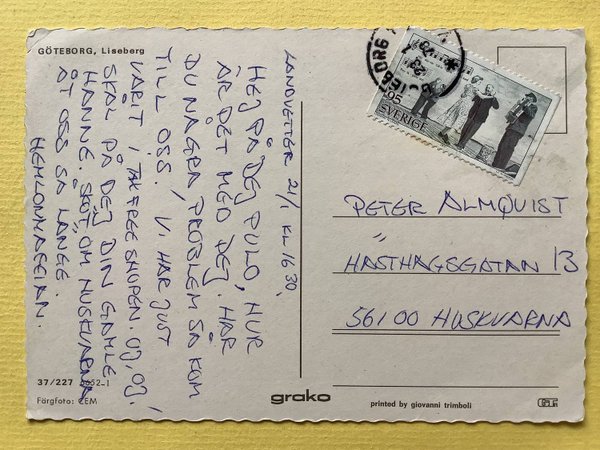 GÖTEBORG, Liseberg
LANDVETTER 21/1 KL 16 30,
HEJ PÅ DEJ PULO, HUR
ÄR DET MED DEJ. HAR
DU NÅGRA PROBLEM SÅ KOM
TILL OSS. VI HAR JUST
VARIT I TAX FREE SHOPEN. OJ, OJ,
SKÅL PÅ DEJ DIN GAMLE
HANNE. SKÖT OM HUSKVARNA
ÅT OSS SÅ LÄNGE.
95
SVERIGE
PETER ALMQVIST
"
HASTHAGSGATAN 13
561 00 HUSKVARNA
37/227 6652-1
Färgfoto: CEM
grako
printed by giovanni trimboli